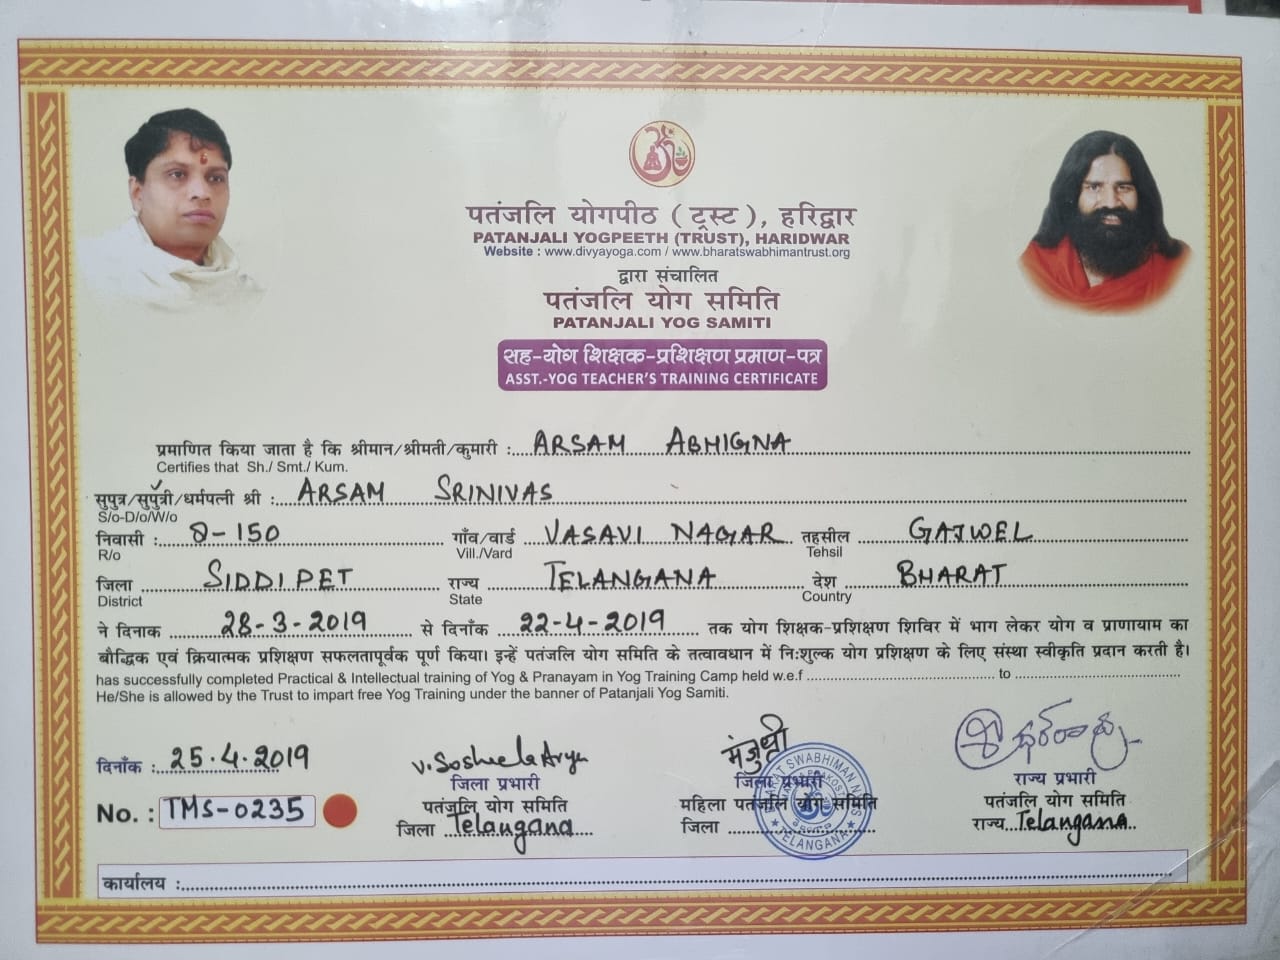 पतंजलि योगपीठ ( ट्रस्ट ), हरिद्वार
PATANJALI YOGPEETH (TRUST), HARIDWAR
Website : www.divyayoga.com / www.bharatswabhimantrust.org
द्वारा संचालित
पतंजलि योग समिति
PATANJALI YOG SAMITI
सह-योग शिक्षक-प्रशिक्षण प्रमाण-पत्र
ASST.-YOG TEACHER'S TRAINING CERTIFICATE
प्रमाणित किया जाता है कि श्रीमान/श्रीमती/कुमारी : ARSAM ABHIGNA
Certifies that Sh./ Smt./ Kum.
सुपुत्र/सुपुत्री/धर्मपत्नी श्री : ARSAM SRINIVAS
S/o-D/o/W/o
निवासी : Q-150 गाँव/वार्ड VASAVI NAGAR तहसील GAJWEL
R/o Vill./Vard Tehsil
जिला SIDDIPET राज्य TELANGANA देश BHARAT
District State Country
ने दिनाक 28-3-2019 से दिनाँक 22-4-2019 तक योग शिक्षक-प्रशिक्षण शिविर में भाग लेकर योग व प्राणायाम का
बौद्धिक एवं क्रियात्मक प्रशिक्षण सफलतापूर्वक पूर्ण किया। इन्हें पतंजलि योग समिति के तत्वावधान में निःशुल्क योग प्रशिक्षण के लिए संस्था स्वीकृति प्रदान करती है।
has successfully completed Practical & Intellectual training of Yog & Pranayam in Yog Training Camp held w.e.f to
He/She is allowed by the Trust to impart free Yog Training under the banner of Patanjali Yog Samiti.
दिनाँक : 25.4.2019
No. : TMS-0235
V. Sosheela Arya
जिला प्रभारी
पतंजलि योग समिति
जिला Telangana
मंजुश्री
जिला प्रभारी
महिला पतंजलि योग समिति
जिला
BHARAT SWABHIMAN NYAS
TELANGANA
राज्य प्रभारी
पतंजलि योग समिति
राज्य Telangana
कार्यालय :